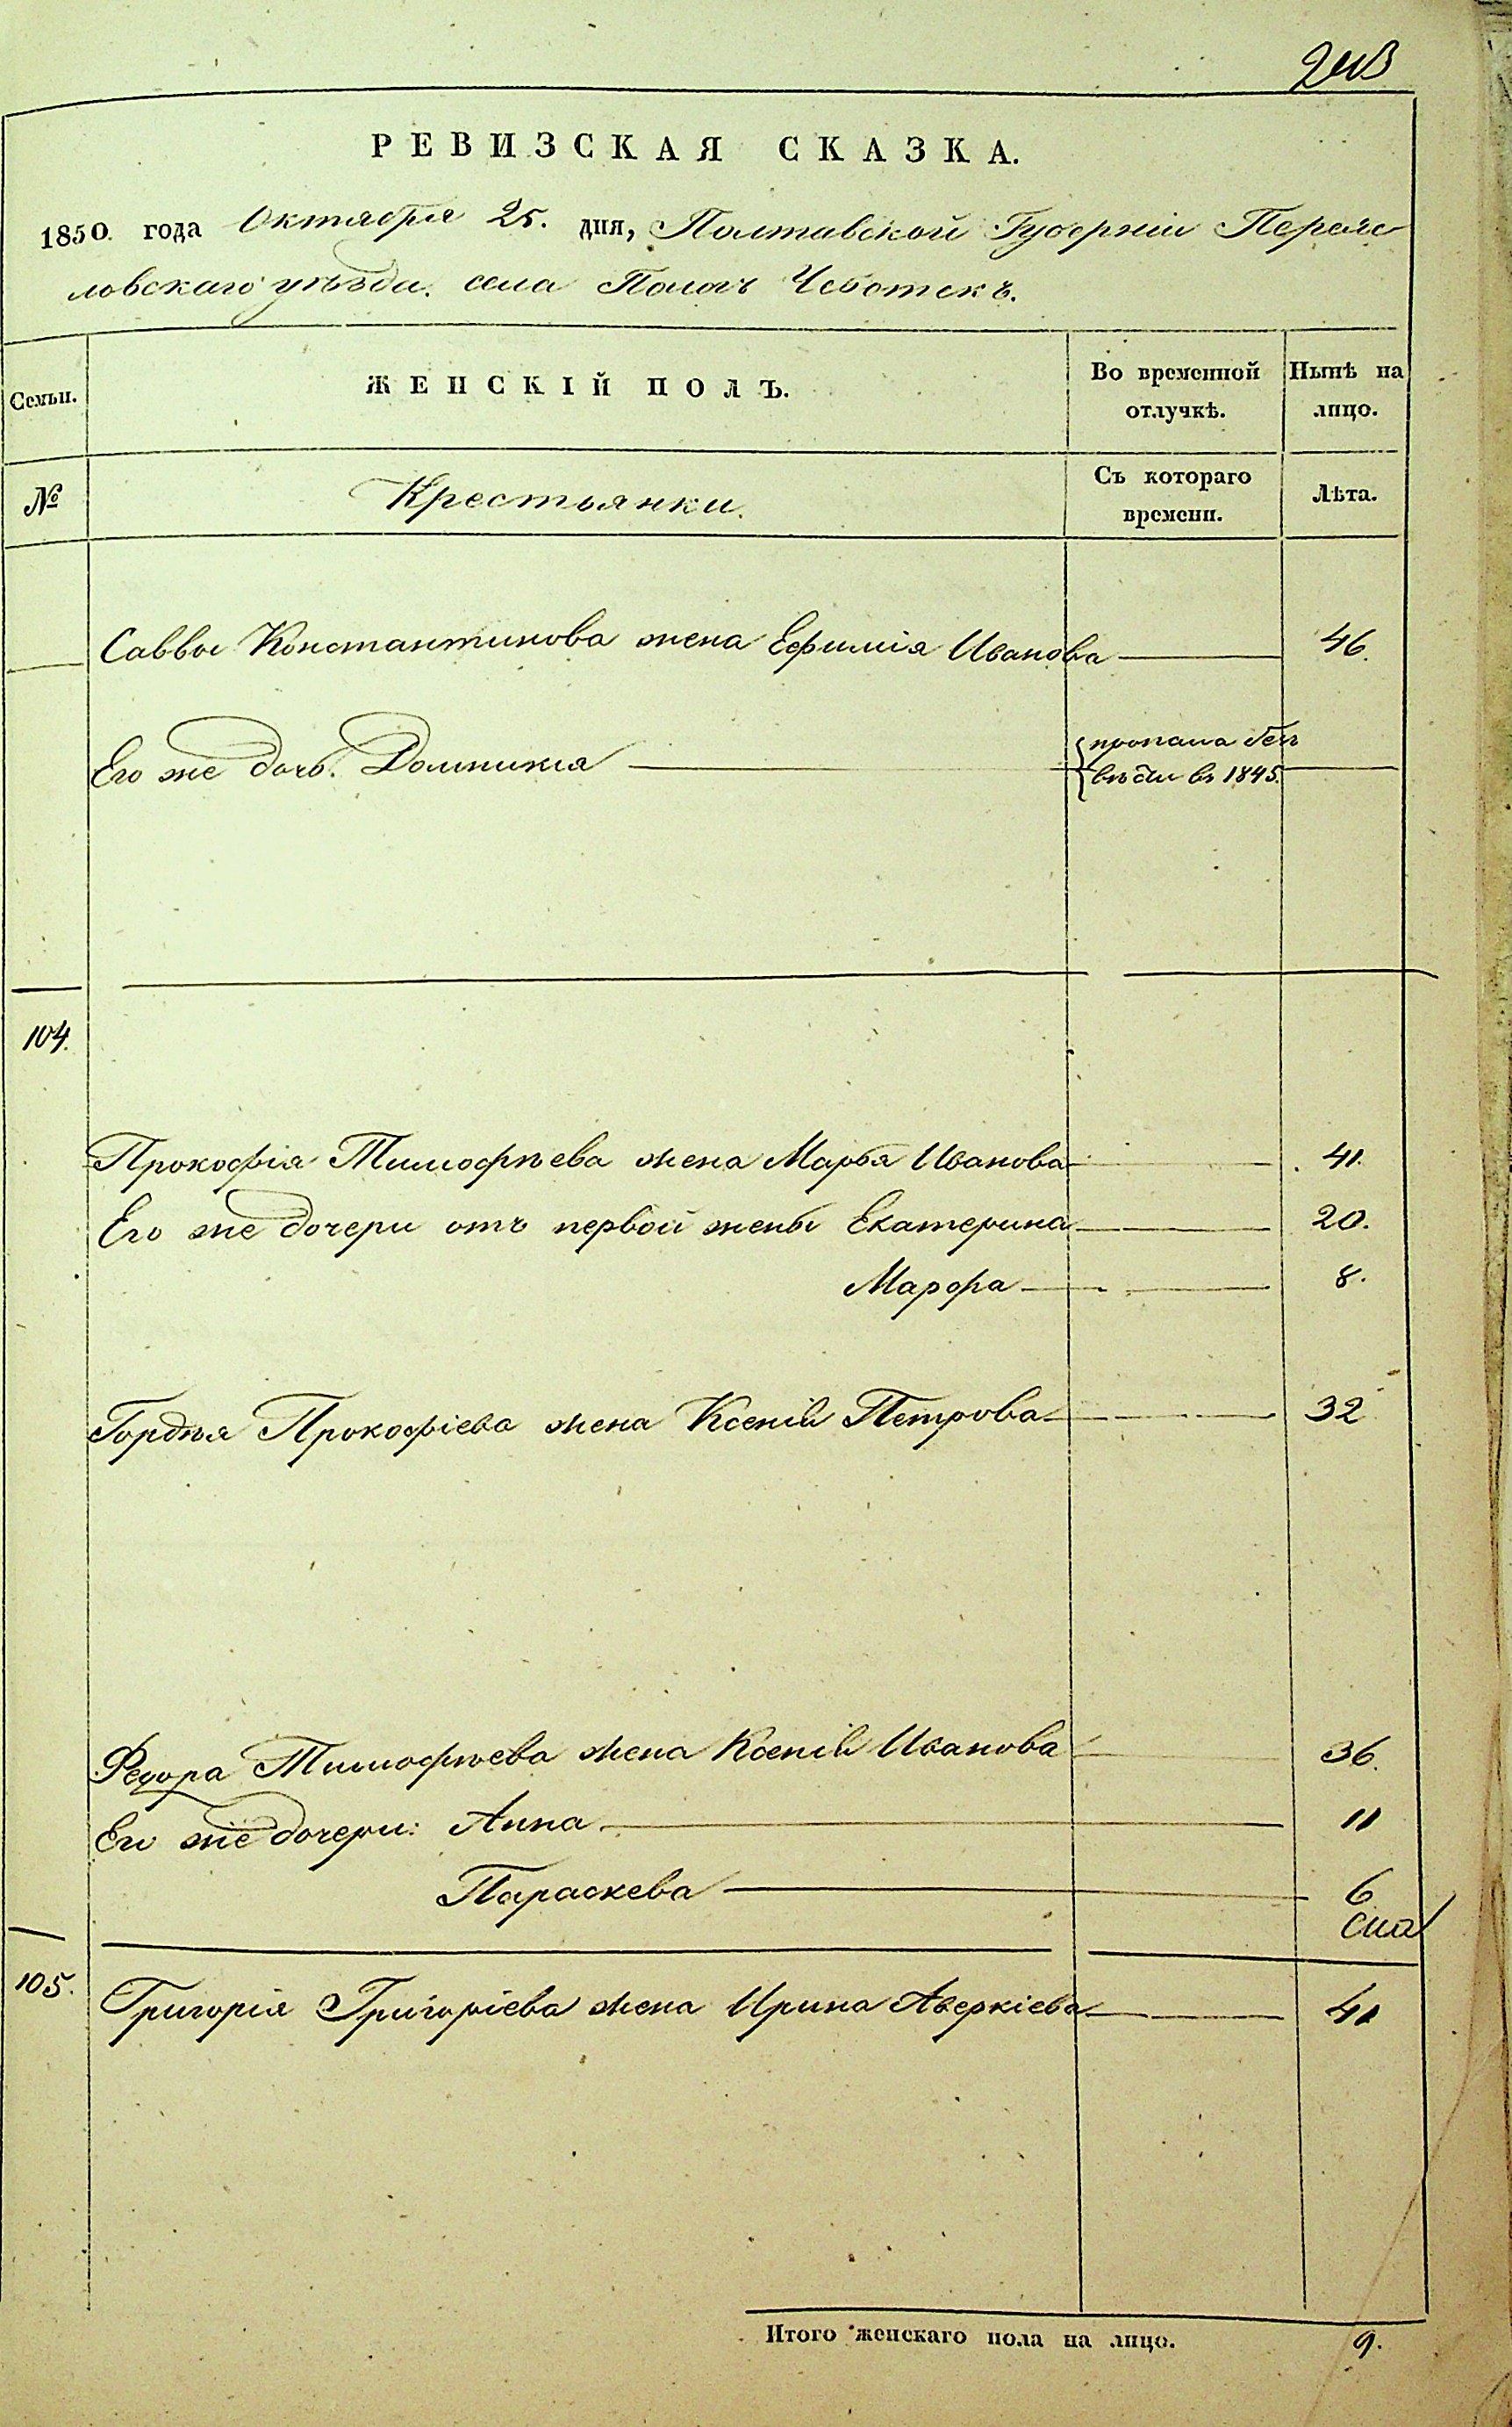 РЕВИЗСКАЯ СКАЗКА.
1850. года Октября 25. дня, Полтавской Губерніи Переяс
ловскаго уѣзда. села Пологъ Чоботекъ.
Семьи.
ЖЕНСКІЙ ПОЛЪ.
Во временной отлучкѣ.
Нынѣ на лицо.
№
Крестьянки.
Съ котораго времени.
Лѣта.
Саввы Константинова жена Ефимія Иванова 46.
Его же дочь. Домникія пропала безъ
вѣсти въ 1845.
104.
Прокофія Тимофѣева жена Марья Иванова 41.
Его же дочери отъ первой жены Екатерина 20.
Марфа 8.
Гордѣя Прокофіева жена Ксенія Петрова 32
Федора Тимофѣева жена Ксенія Иванова 36.
Его же дочери: Анна 11
Параскева 6
105. Григорія Григоріева жена Ирина Аверкіева 41
Итого женскаго пола на лицо. 9.